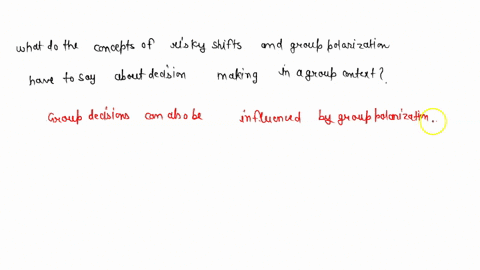 what do the concepts of risky shifts and group polarization
have to say about decision making in a group context?
Group decisions can also be influenced by group polarization.